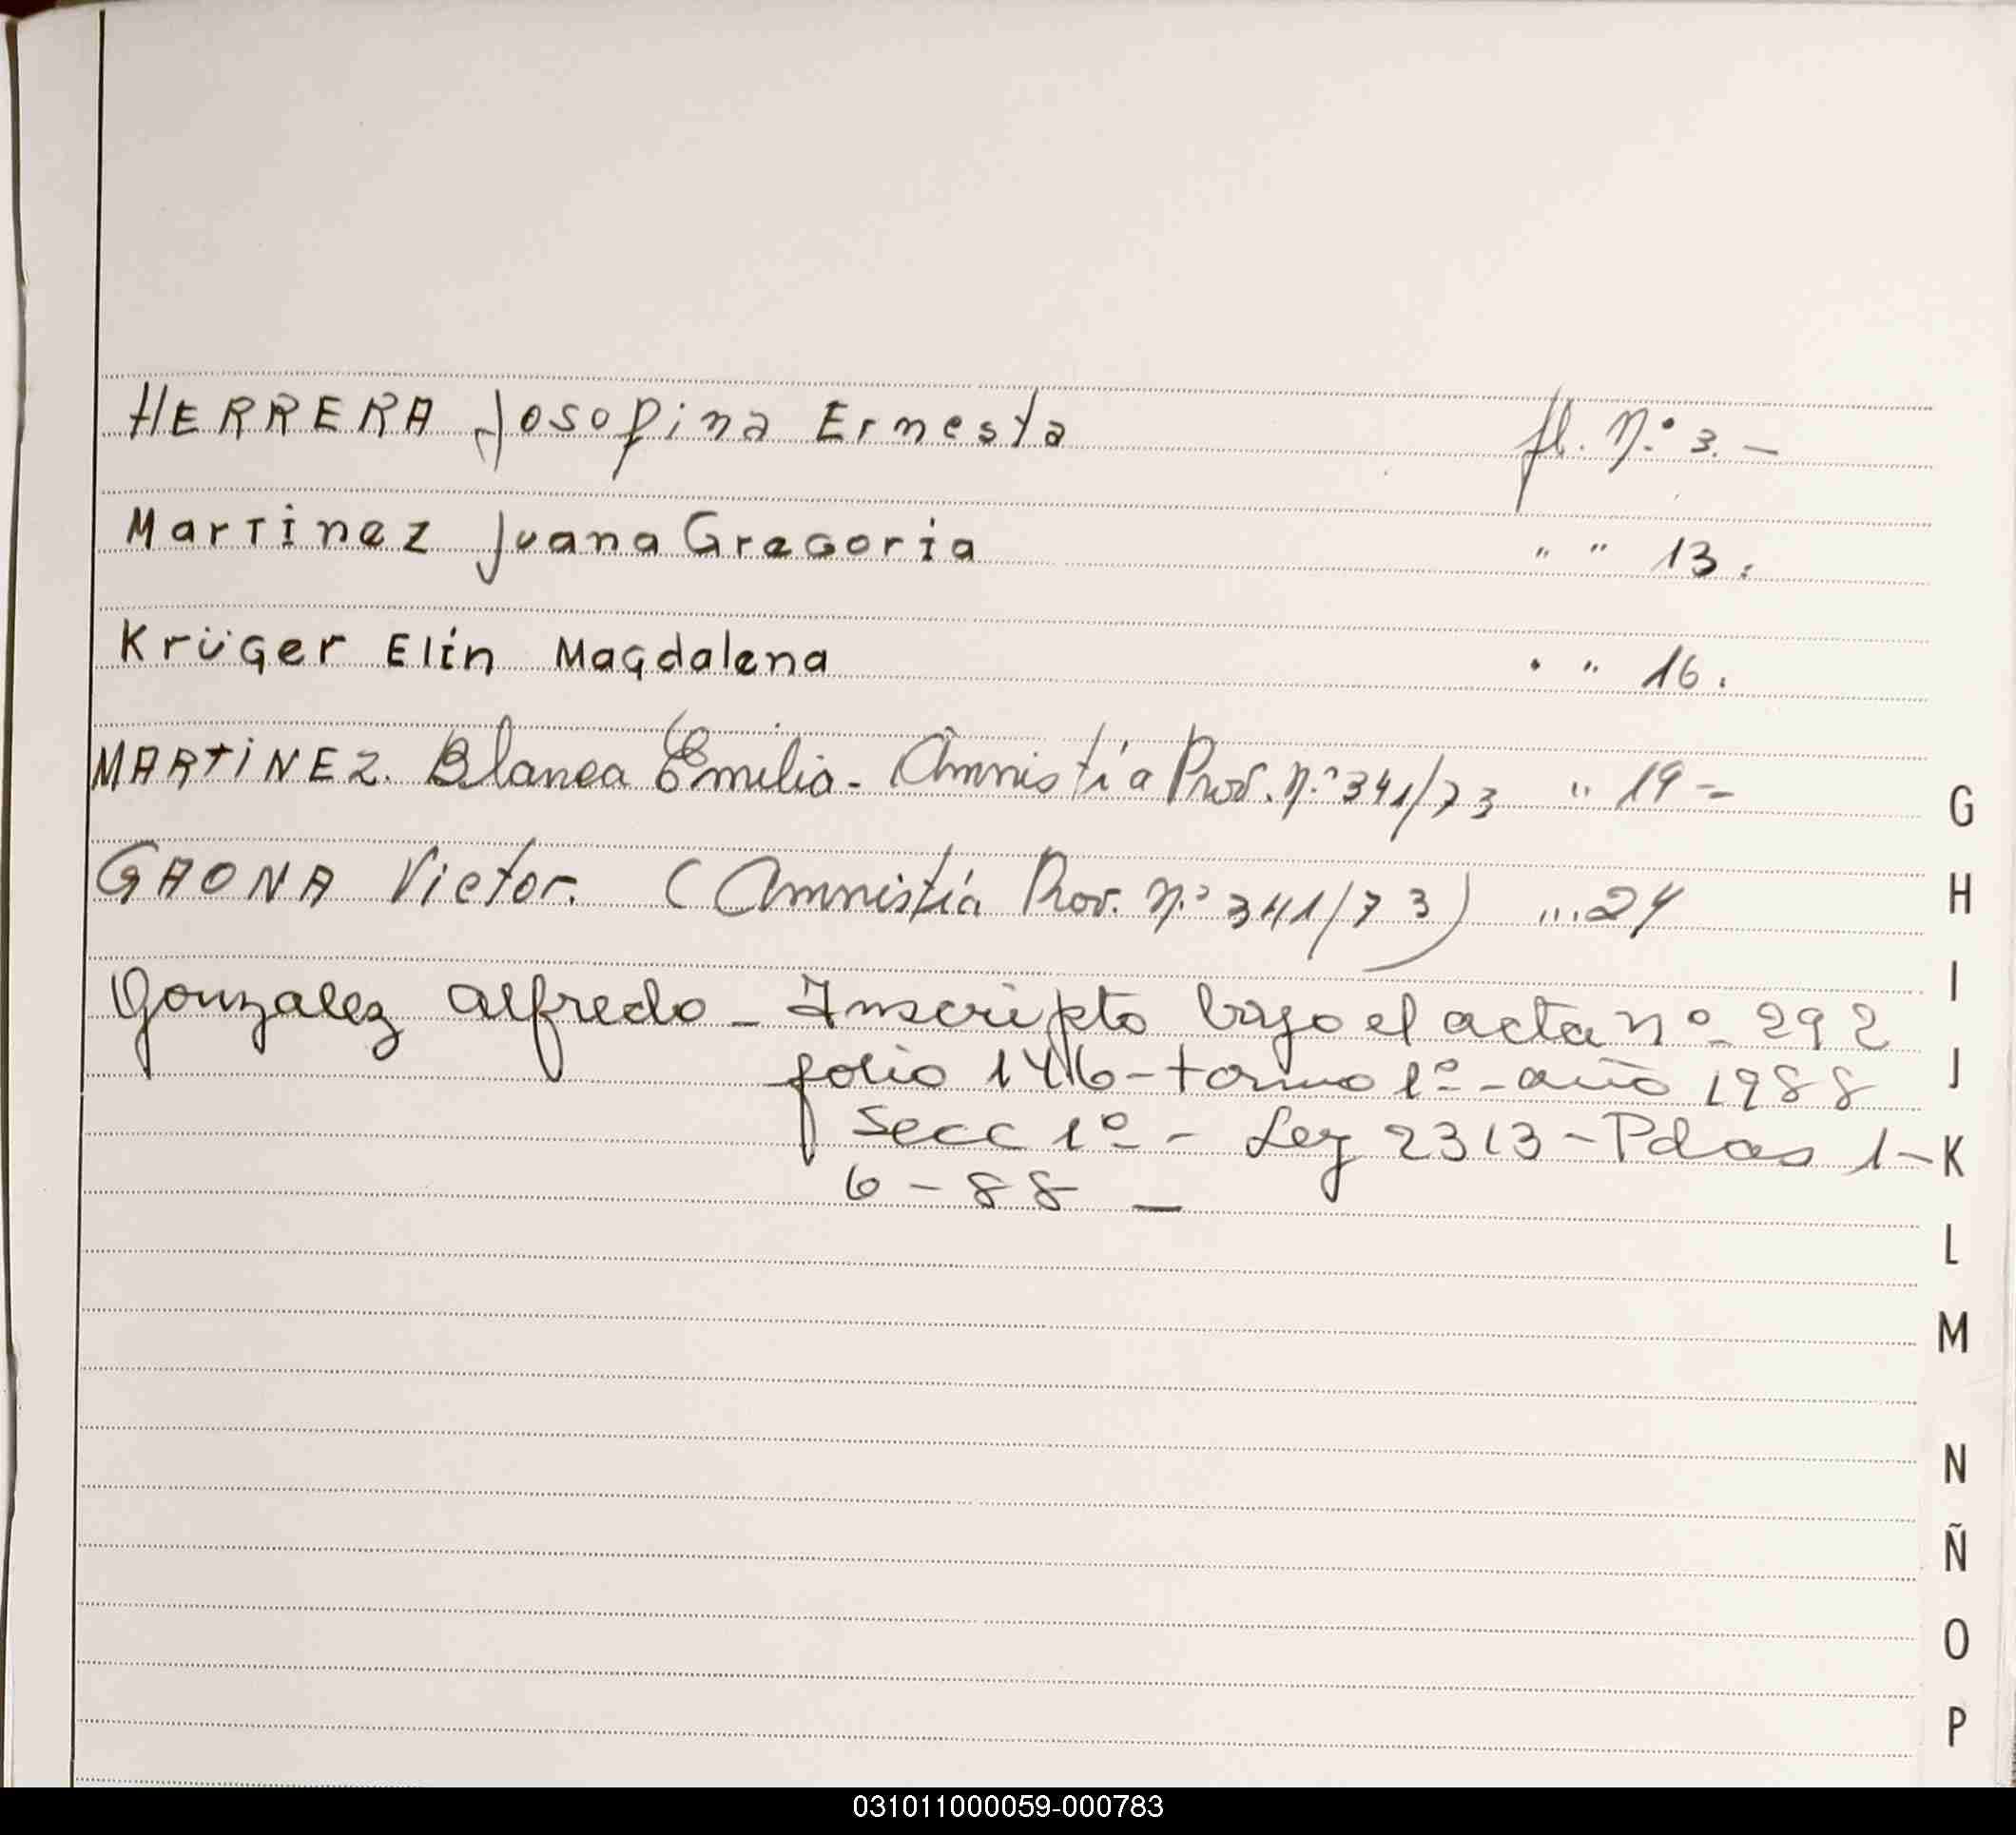 HERRERA Josofina Ernesta fl. N.º 3. –
Martinez Juana Gregoria " " 13.
Krüger Elín Magdalena " " 16.
MARTiNEZ. Blanca Emilia - Amnistía Prov. N.º 341/73 " 19 =
GAONA Victor. (Amnistía Prov. N.º 341/73) "... 24
Gonzalez Alfredo - Inscripto bajo el acta nº 292
folio 146 - tomo 1º - año 1988
Secc 1º - Ley 2313 - Pdas 1-
6 - 88 _
G
H
I
J
K
L
M
N
Ñ
O
P
031011000059-000783